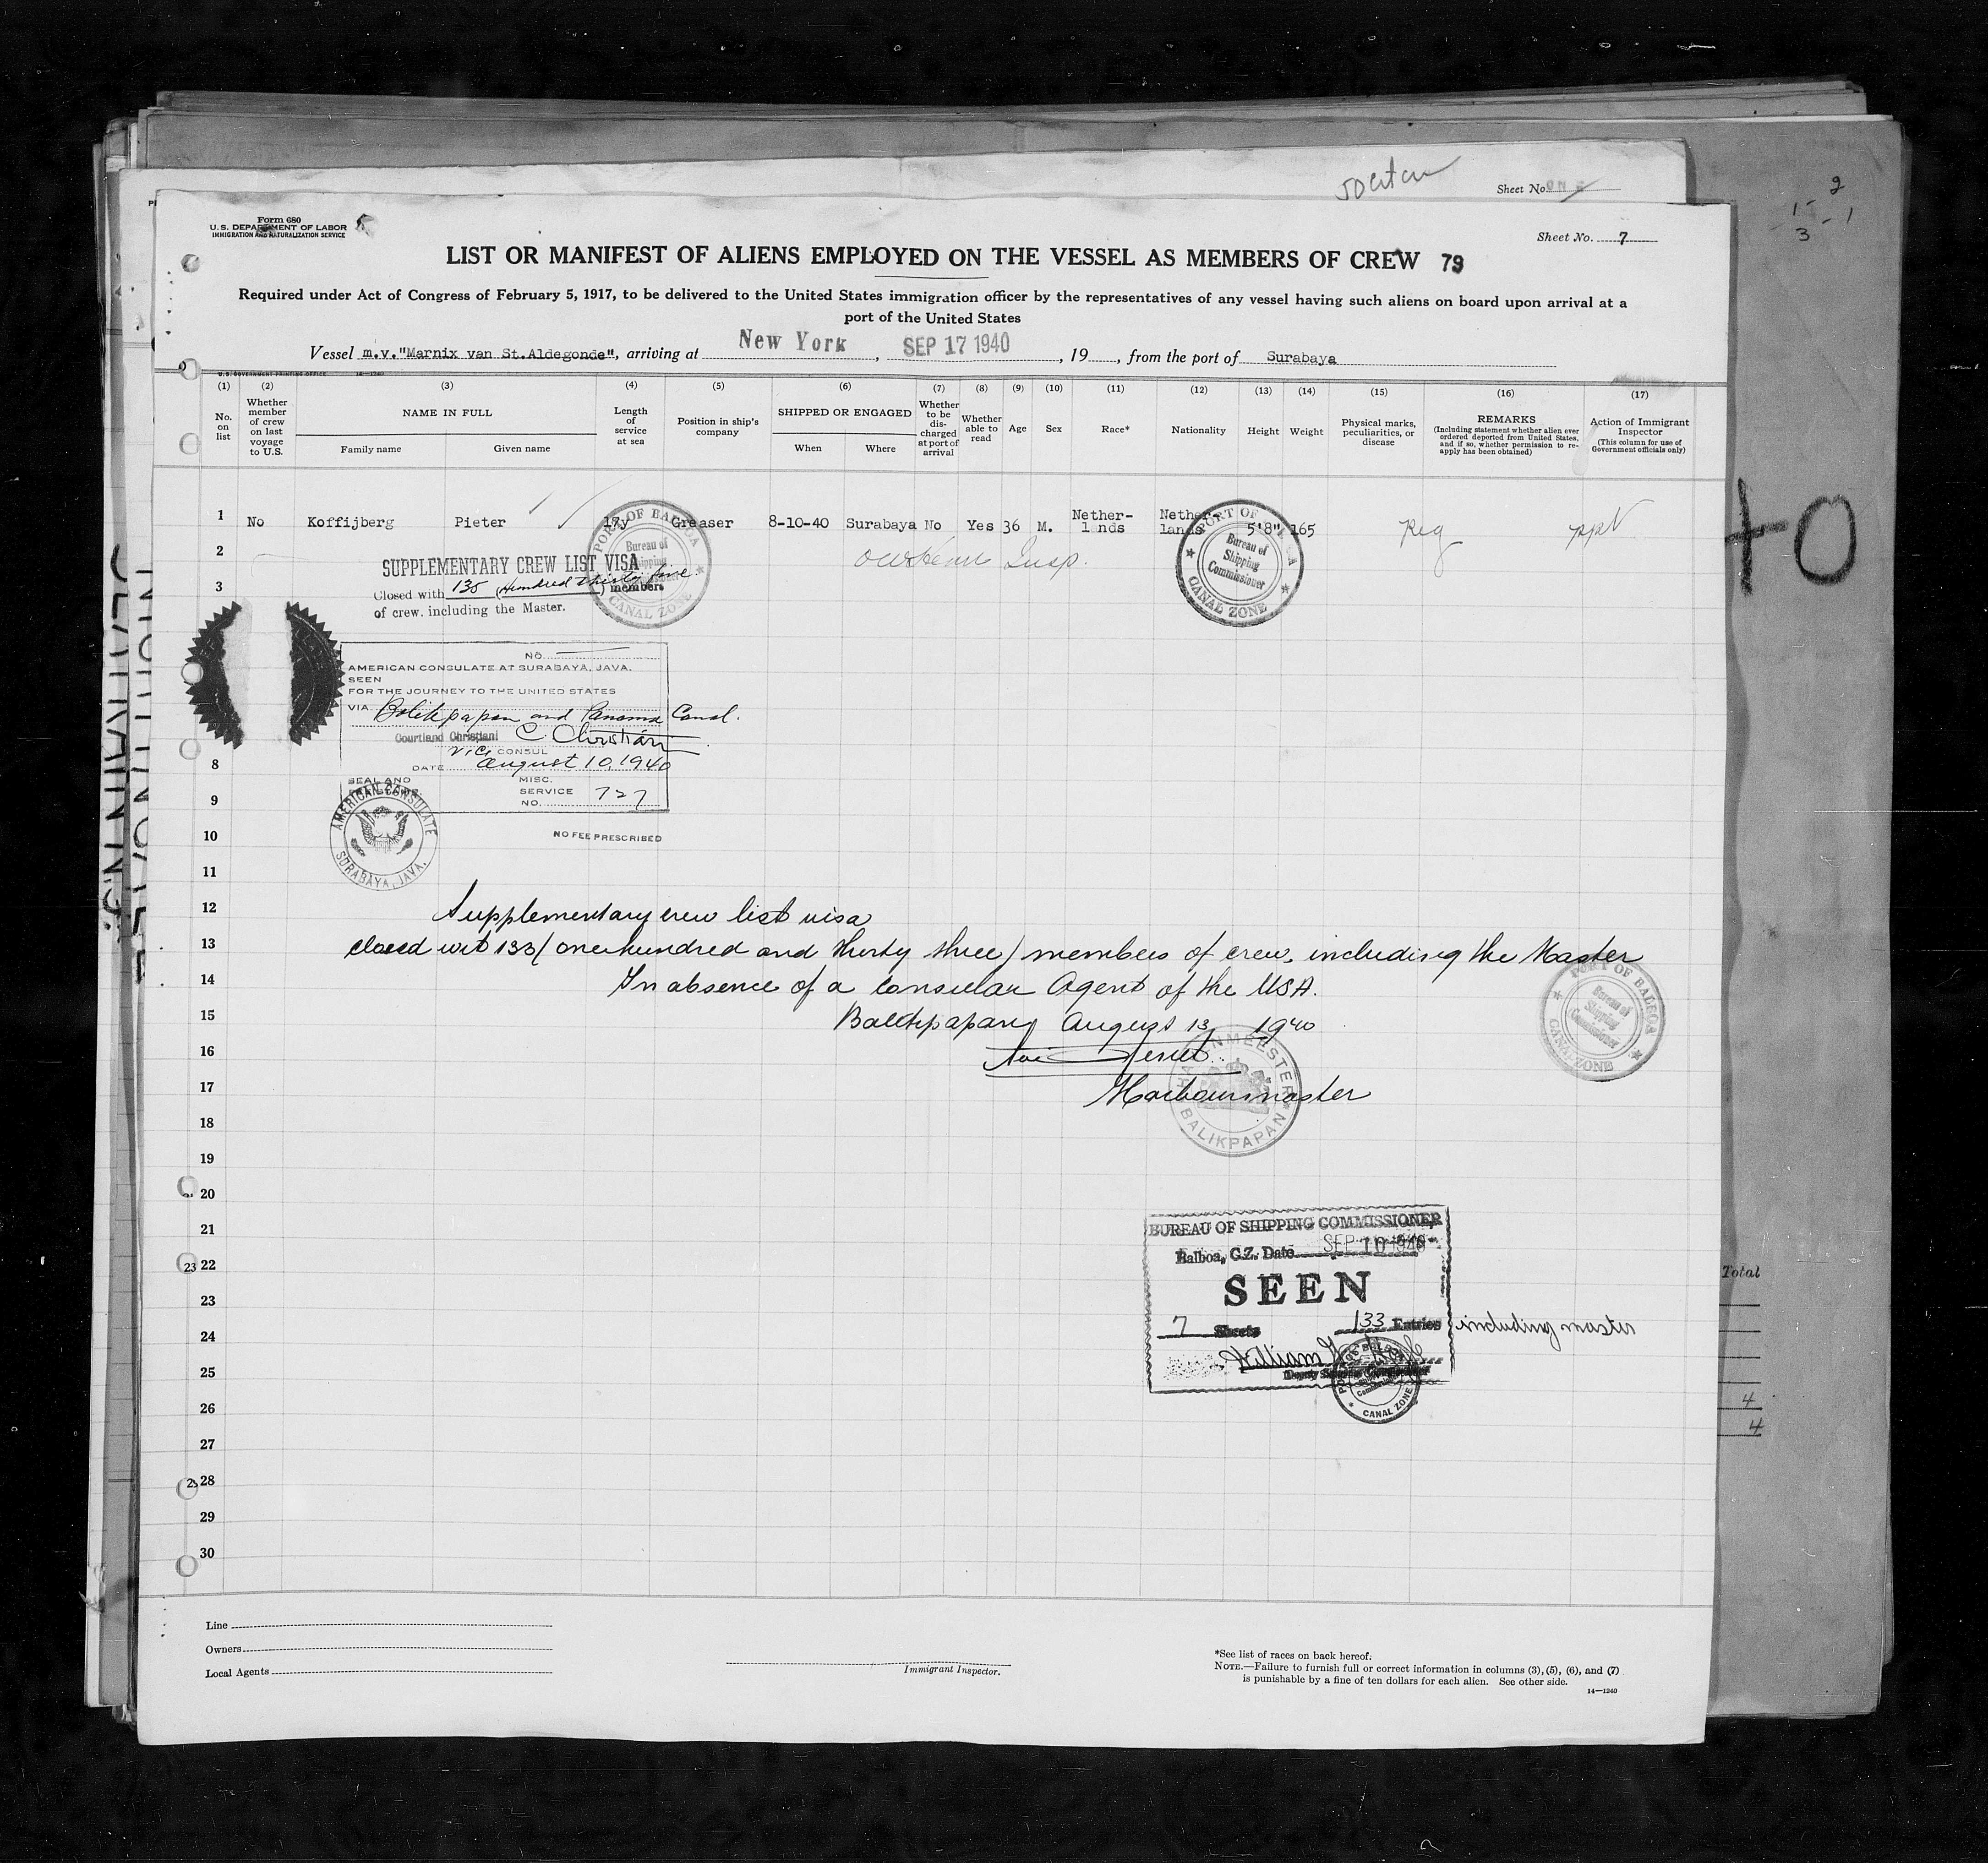 Sheet No.
2
1- - 1
3
Form 680
U.S. DEPARTMENT OF LABOR
IMMIGRATION AND NATURALIZATION SERVICE
Sheet No. 7
LIST OR MANIFEST OF ALIENS EMPLOYED ON THE VESSEL AS MEMBERS OF CREW 79
Required under Act of Congress of February 5, 1917, to be delivered to the United States immigration officer by the representatives of any vessel having such aliens on board upon arrival at a
port of the United States
Vessel m.v."Marnix van St.Aldegonde", arriving at New York, SEP 17 1940, 19, from the port of Surabaya
U.S. GOVERNMENT PRINTING OFFICE 14—1240
(1) (2) (3) (4) (5) (6) (7) (8) (9) (10) (11) (12) (13) (14) (15) (16) (17)
No. on list
Whether member of crew on last voyage to U.S.
NAME IN FULL
Family name Given name
Length of service at sea
Position in ship's company
SHIPPED OR ENGAGED
When Where
Whether to be discharged at port of arrival
Whether able to read
Age
Sex
Race*
Nationality
Height
Weight
Physical marks, peculiarities, or disease
REMARKS
(Including statement whether alien ever ordered deported from United States, and if so, whether permission to reapply has been obtained)
Action of Immigrant Inspector
(This column for use of Government officials only)
1 No Koffijberg Pieter 17y Greaser 8-10-40 Surabaya No Yes 36 M. Nether-lands Nether-lands 5'8" 165
PORT OF BALBOA
Bureau of
Shipping
Commissioner
CANAL ZONE
PORT OF
Bureau of
Shipping
Commissioner
CANAL ZONE
2
SUPPLEMENTARY CREW LIST VISA
3
Closed with 135 (Hundred thirty five) members
of crew. including the Master.
NO.
AMERICAN CONSULATE AT SURABAYA, JAVA.
SEEN
FOR THE JOURNEY TO THE UNITED STATES
VIA Balikpapan and Panama Canal.
Courtland Christiani C. Christiani
Vice CONSUL
DATE August 10, 1940
SEAL AND
MISC.
SERVICE
NO. 727
NO FEE PRESCRIBED
AMERICAN CONSULATE
SURABAYA, JAVA.
8
9
10
11
12 Supplementary crew list visa
13 closed wit 133 (one hundred and thirty three) members of crew, including the Master
14 In absence of a Consular Agent of the USA.
15 Balikpapan, August 13, 1940
16
17 Harbourmaster
HAVENMEESTER
BALIKPAPAN
PORT OF BALBOA
Bureau of
Shipping
Commissioner
CANAL ZONE
18
19
20
21
BUREAU OF SHIPPING COMMISSIONER
Balboa, C.Z. Date SEP 10 1940
23 22
SEEN
23
24
7 Sheets 133 Entries including master
William
Deputy Shipping Commissioner
CANAL ZONE
25
26
27
28
29
30
Total
4
4
Line
Owners
Local Agents
Immigrant Inspector.
*See list of races on back hereof.
NOTE.—Failure to furnish full or correct information in columns (3), (5), (6), and (7)
is punishable by a fine of ten dollars for each alien. See other side.
14—1240